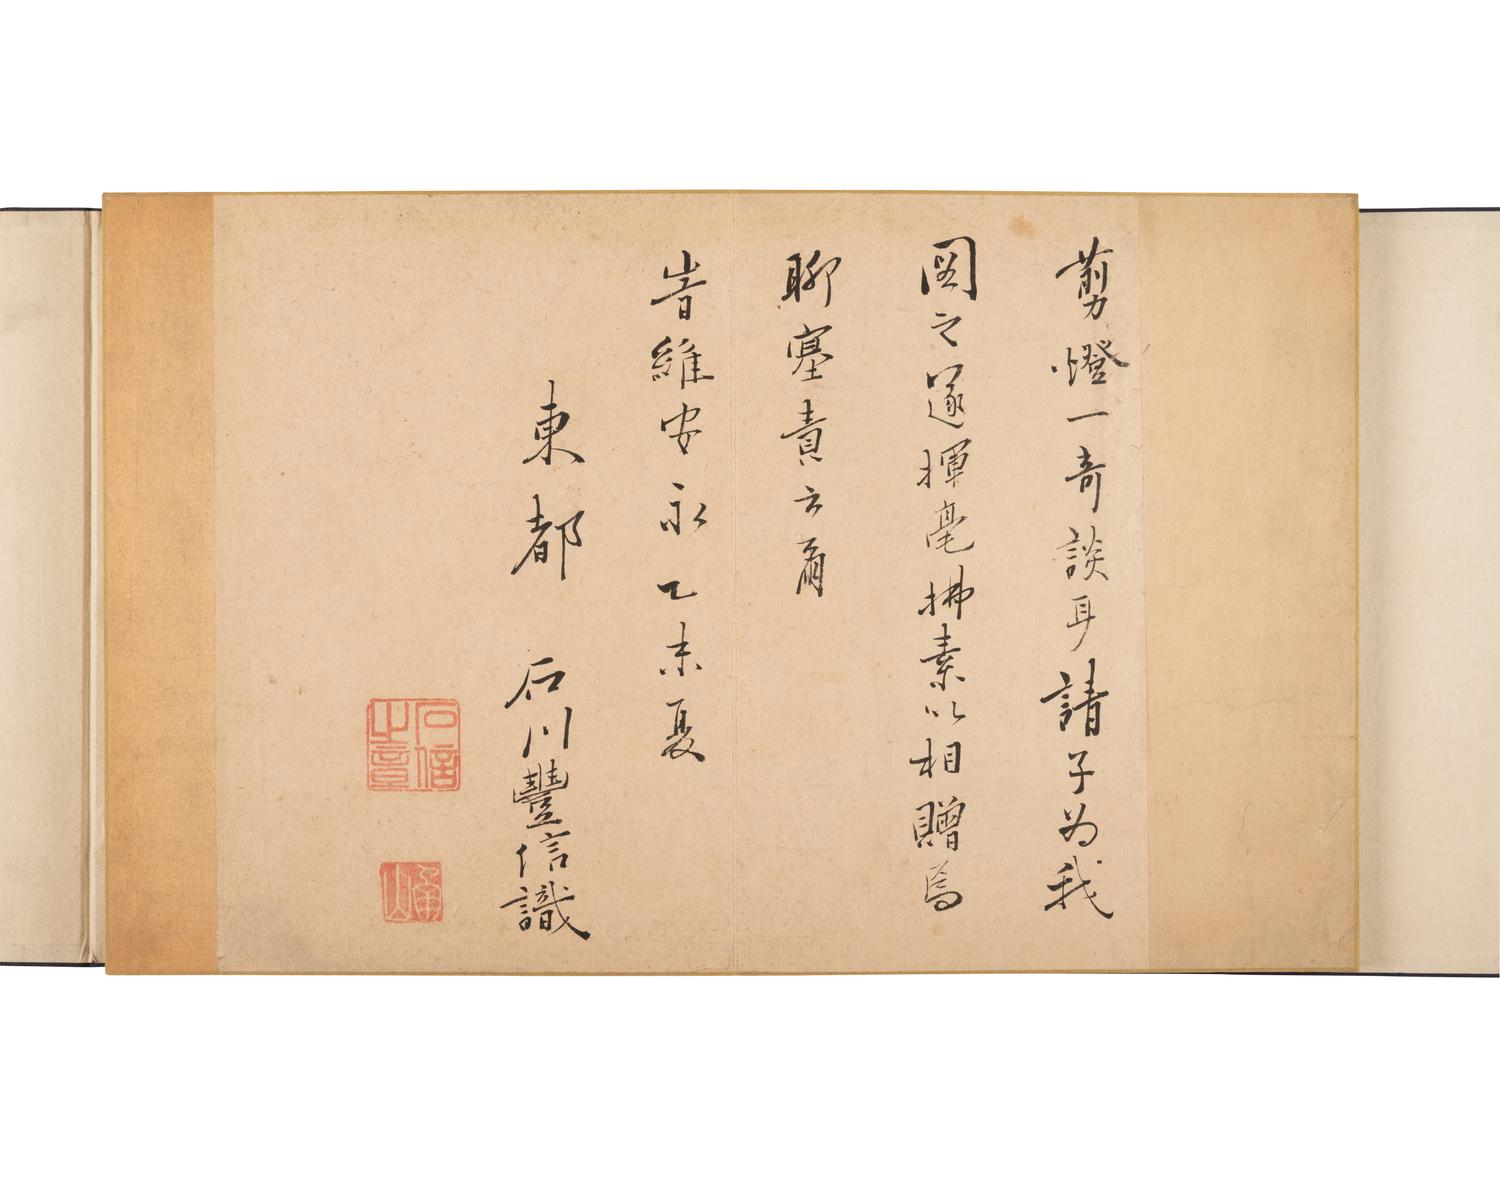 剪燈一奇談耳請子为我
圖之遂揮毫拂素以相贈焉
聊塞責云爾
旹維安永乙未夏
東都 石川豐信識
石信之章